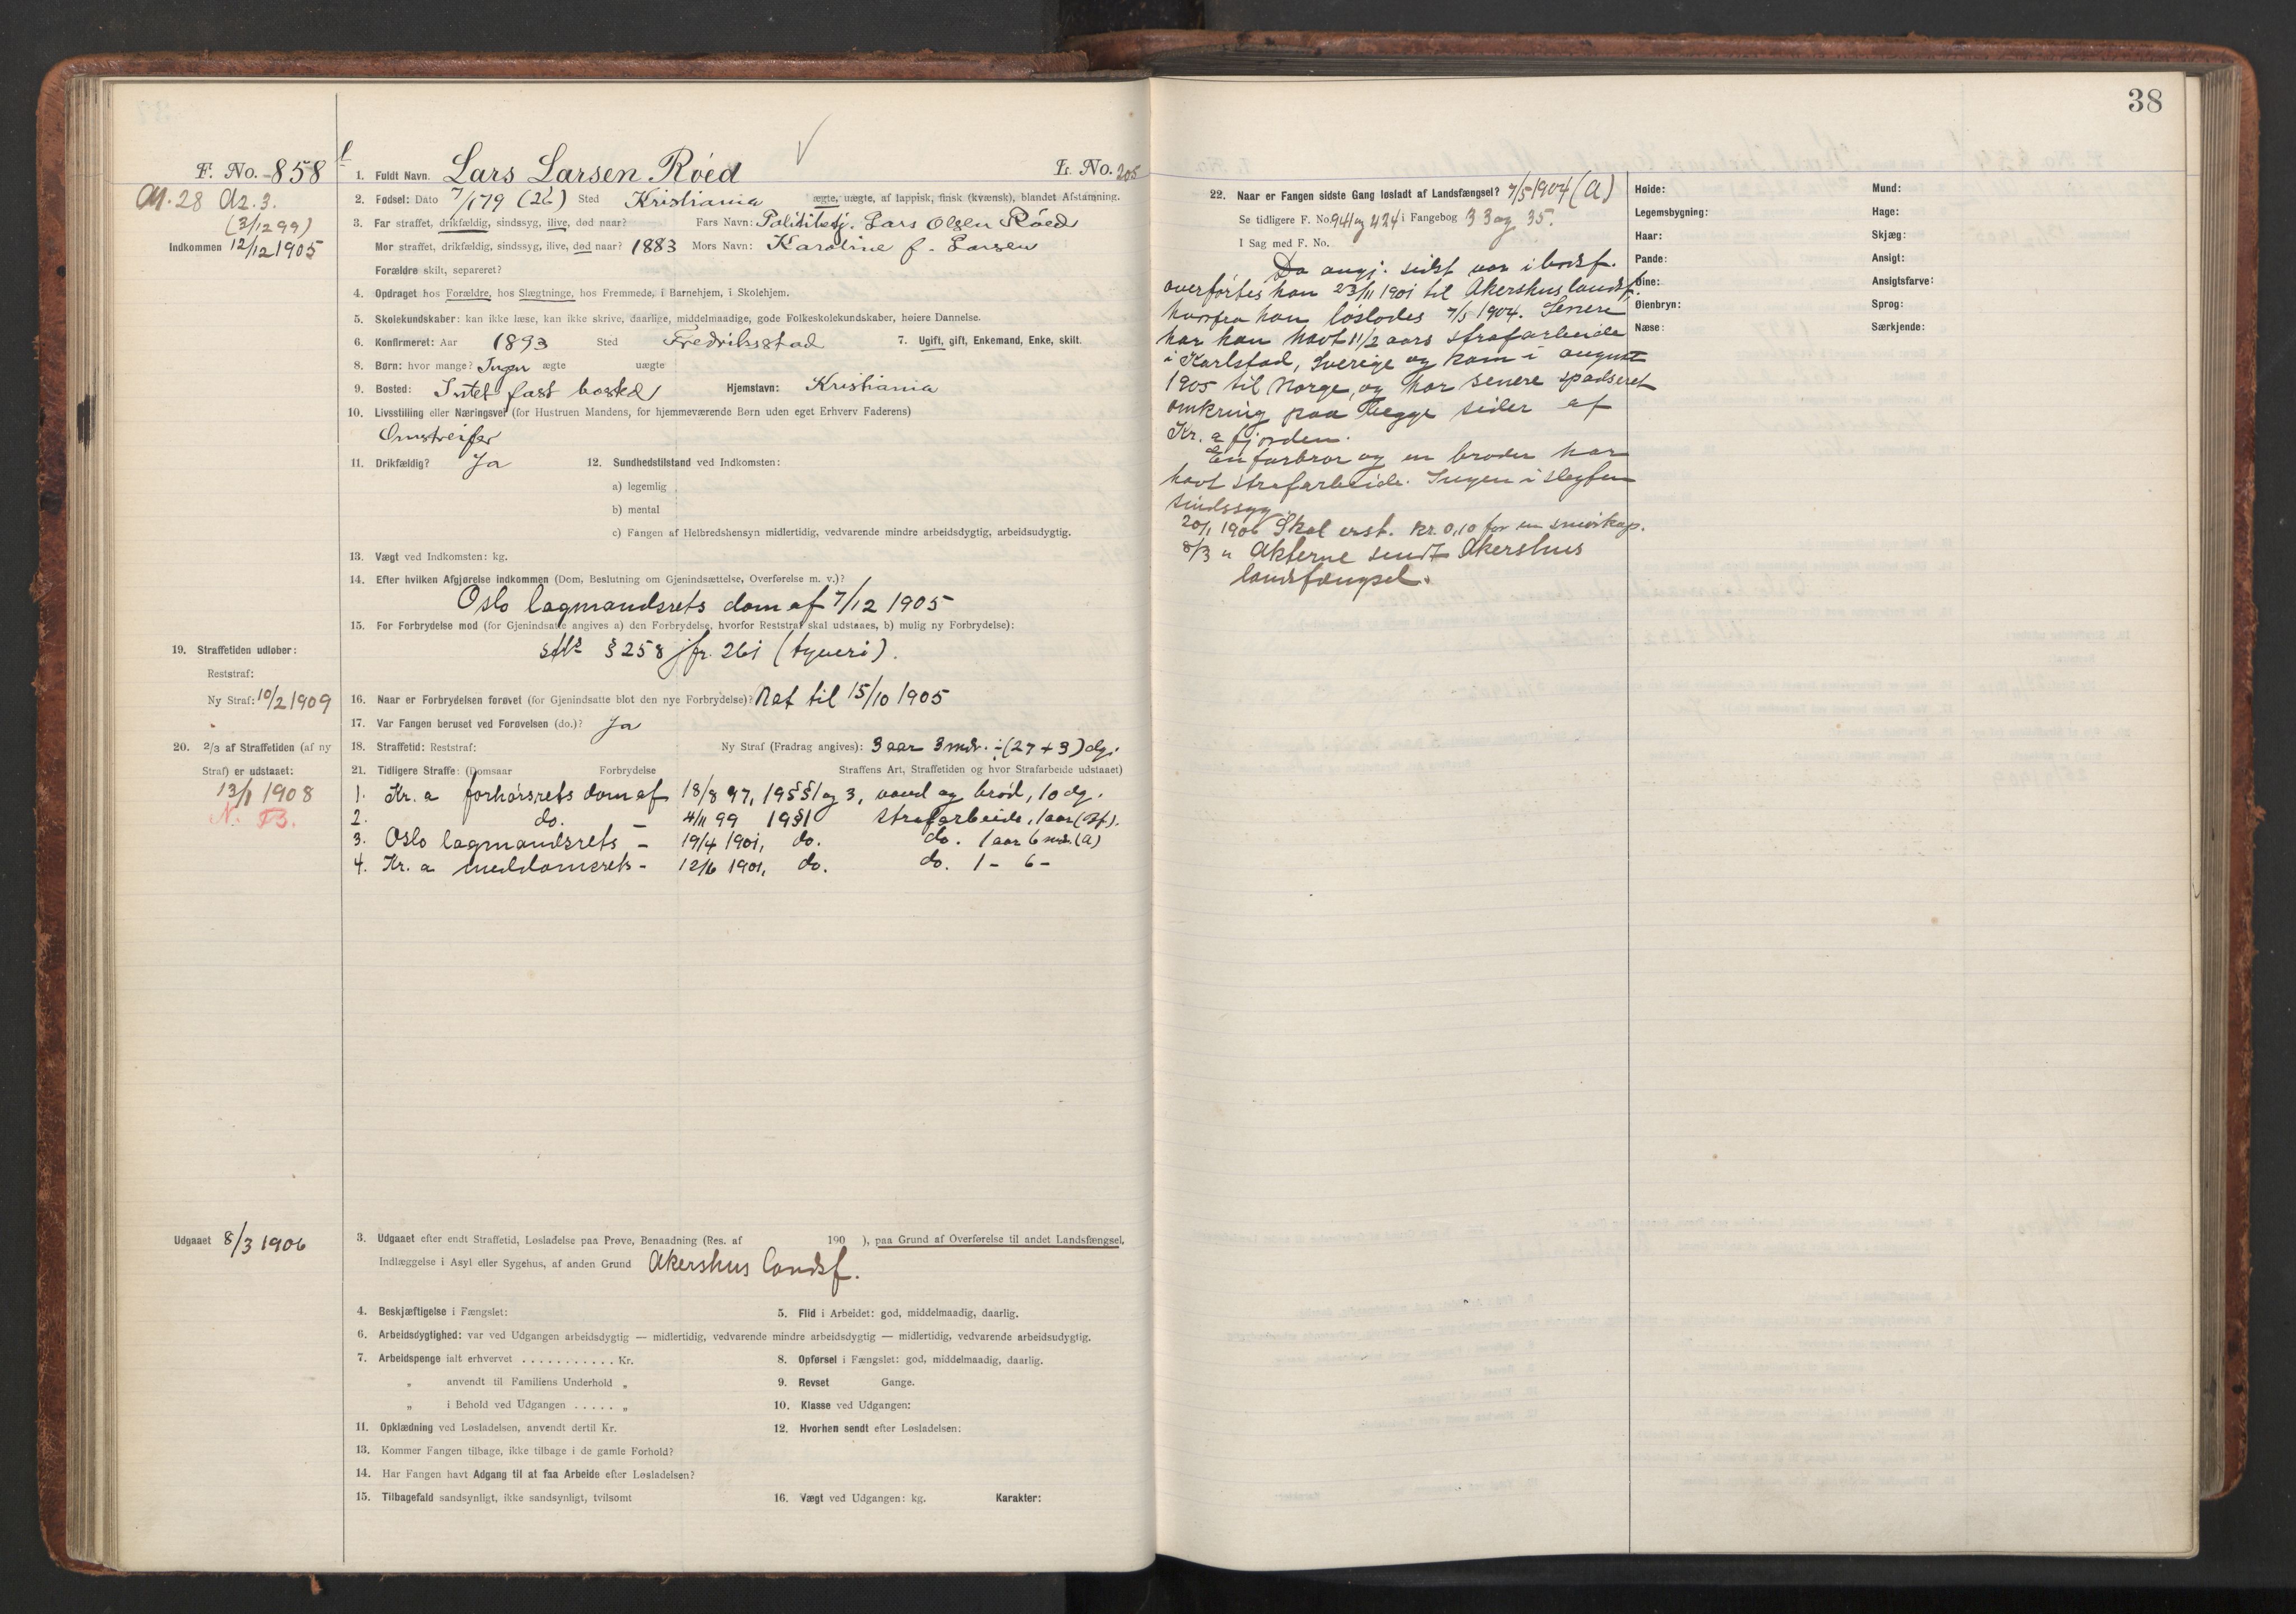 38
F. No. 858
M. 28 Az. 3.
(3/12 99)
Indkommen 12/12 1905
1. Fuldt Navn. Lars Larsen Röed L. No. 205
2. Fødsel: Dato 7/1 79 (26) Sted Kristiania ægte, uægte, af lappisk, finsk (kvænsk), blandet Afstamning.
3. Far straffet, drikfældig, sindssyg, ilive, død naar? Fars Navn: Politibetj. Lars Olsen Röed
Mor straffet, drikfældig, sindssyg, ilive, død naar? 1883 Mors Navn: Karoline f. Larsen
Forældre skilt, separeret?
4. Opdraget hos Forældre, hos Slægtninge, hos Fremmede, i Barnehjem, i Skolehjem.
5. Skolekundskaber: kan ikke læse, kan ikke skrive, daarlige, middelmaadige, gode Folkeskolekundskaber, høiere Dannelse.
6. Konfirmeret: Aar 1893 Sted Fredriksstad 7. Ugift, gift, Enkemand, Enke, skilt.
8. Børn: hvor mange? Ingen ægte uægte
9. Bosted: Intet fast bosted Hjemstavn: Kristiania
10. Livsstilling eller Næringsvei (for Hustruen Mandens, for hjemmeværende Børn uden eget Erhverv Faderens)
Omstreifer
11. Drikfældig? Ja 12. Sundhedstilstand ved Indkomsten:
a) legemlig
b) mental
c) Fangen af Helbredshensyn midlertidig, vedvarende mindre arbeidsdygtig, arbeidsudygtig.
13. Vægt ved Indkomsten: kg.
14. Efter hvilken Afgjørelse indkommen (Dom, Beslutning om Gjenindsættelse, Overførelse m. v.)?
Oslo lagmandsrets dom af 7/12 1905
15. For Forbrydelse mod (for Gjenindsatte angives a) den Forbrydelse, hvorfor Reststraf skal udstaaes, b) mulig ny Forbrydelse):
§ 258 jfr. 261 (tyveri).
19. Straffetiden udløber:
Reststraf:
Ny Straf: 10/2 1909
16. Naar er Forbrydelsen forøvet (for Gjenindsatte blot den nye Forbrydelse)? Nat til 15/10 1905
17. Var Fangen beruset ved Forøvelsen (do.)? Ja
20. 2/3 af Straffetiden (af ny
Straf) er udstaaet:
13/1 1908
N. B.
18. Straffetid: Reststraf: Ny Straf (Fradrag angives): 3 aar 3 mdr. ÷ (27 + 3) dg.
21. Tidligere Straffe: (Domsaar Forbrydelse Straffens Art, Straffetiden og hvor Strafarbeide udstaaet)
1. Kr. a forhörsrets dom af 18/8 97, 19 §§ 1 og 3, vand og bröd, 10 dg.
2. do. — 4/11 99 19 § 1 strafarbeide, 1 aar (Bf).
3. Oslo lagmandsrets — 19/4 1901, do. do. 1 aar 6 mdr. (A)
4. Kr. a meddomsrets - 12/6 1901, do. do. 1 - 6 -
Udgaaet 8/3 1906
3. Udgaaet efter endt Straffetid, Løsladelse paa Prøve, Benaadning (Res. af 190 ), paa Grund af Overførelse til andet Landsfængsel,
Indlæggelse i Asyl eller Sygehus, af anden Grund Akershus landsf.
4. Beskjæftigelse i Fængslet: 5. Flid i Arbeidet: god, middelmaadig, daarlig.
6. Arbeidsdygtighed: var ved Udgangen arbeidsdygtig — midlertidig, vedvarende mindre arbeidsdygtig — midlertidig, vedvarende arbeidsudygtig.
7. Arbeidspenge ialt erhvervet . . . . . . . . . . . Kr. 8. Opførsel i Fængslet: god, middelmaadig, daarlig.
„ anvendt til Familiens Underhold „ 9. Revset Gange.
„ i Behold ved Udgangen . . . . . „ 10. Klasse ved Udgangen:
11. Opklædning ved Løsladelsen, anvendt dertil Kr. 12. Hvorhen sendt efter Løsladelsen:
13. Kommer Fangen tilbage, ikke tilbage i de gamle Forhold?
14. Har Fangen havt Adgang til at faa Arbeide efter Løsladelsen?
15. Tilbagefald sandsynligt, ikke sandsynligt, tvilsomt 16. Vægt ved Udgangen: kg. Karakter:
22. Naar er Fangen sidste Gang løsladt af Landsfængsel? 7/5 1904 (A)
Se tidligere F. No. 94 og 424 i Fangebog 33 og 35.
I Sag med F. No.
Da angj. sidst var i bodsf.
overförtes han 23/11 1901 til Akershus landsf.
hvorfra han löslodes 7/5 1904. Senere
har han havt 1 1/2 aars strafarbeide
i Karlstad, Sverige og kom i august
1905 til Norge, og har senere spadseret
omkring paa begge sider af
Kr. a fjorden.
En farbror og en broder har
havt strafarbeide. Ingen i slegten
sindssyg.
20/1 1906 Skal erst. kr. 0,10 for en smörkop.
8/3 " Akterne sendt Akershus
landsfængsel.
Høide: Mund:
Legemsbygning: Hage:
Haar: Skjæg:
Pande: Ansigt:
Øine: Ansigtsfarve:
Øienbryn: Sprog:
Næse: Særkjende: